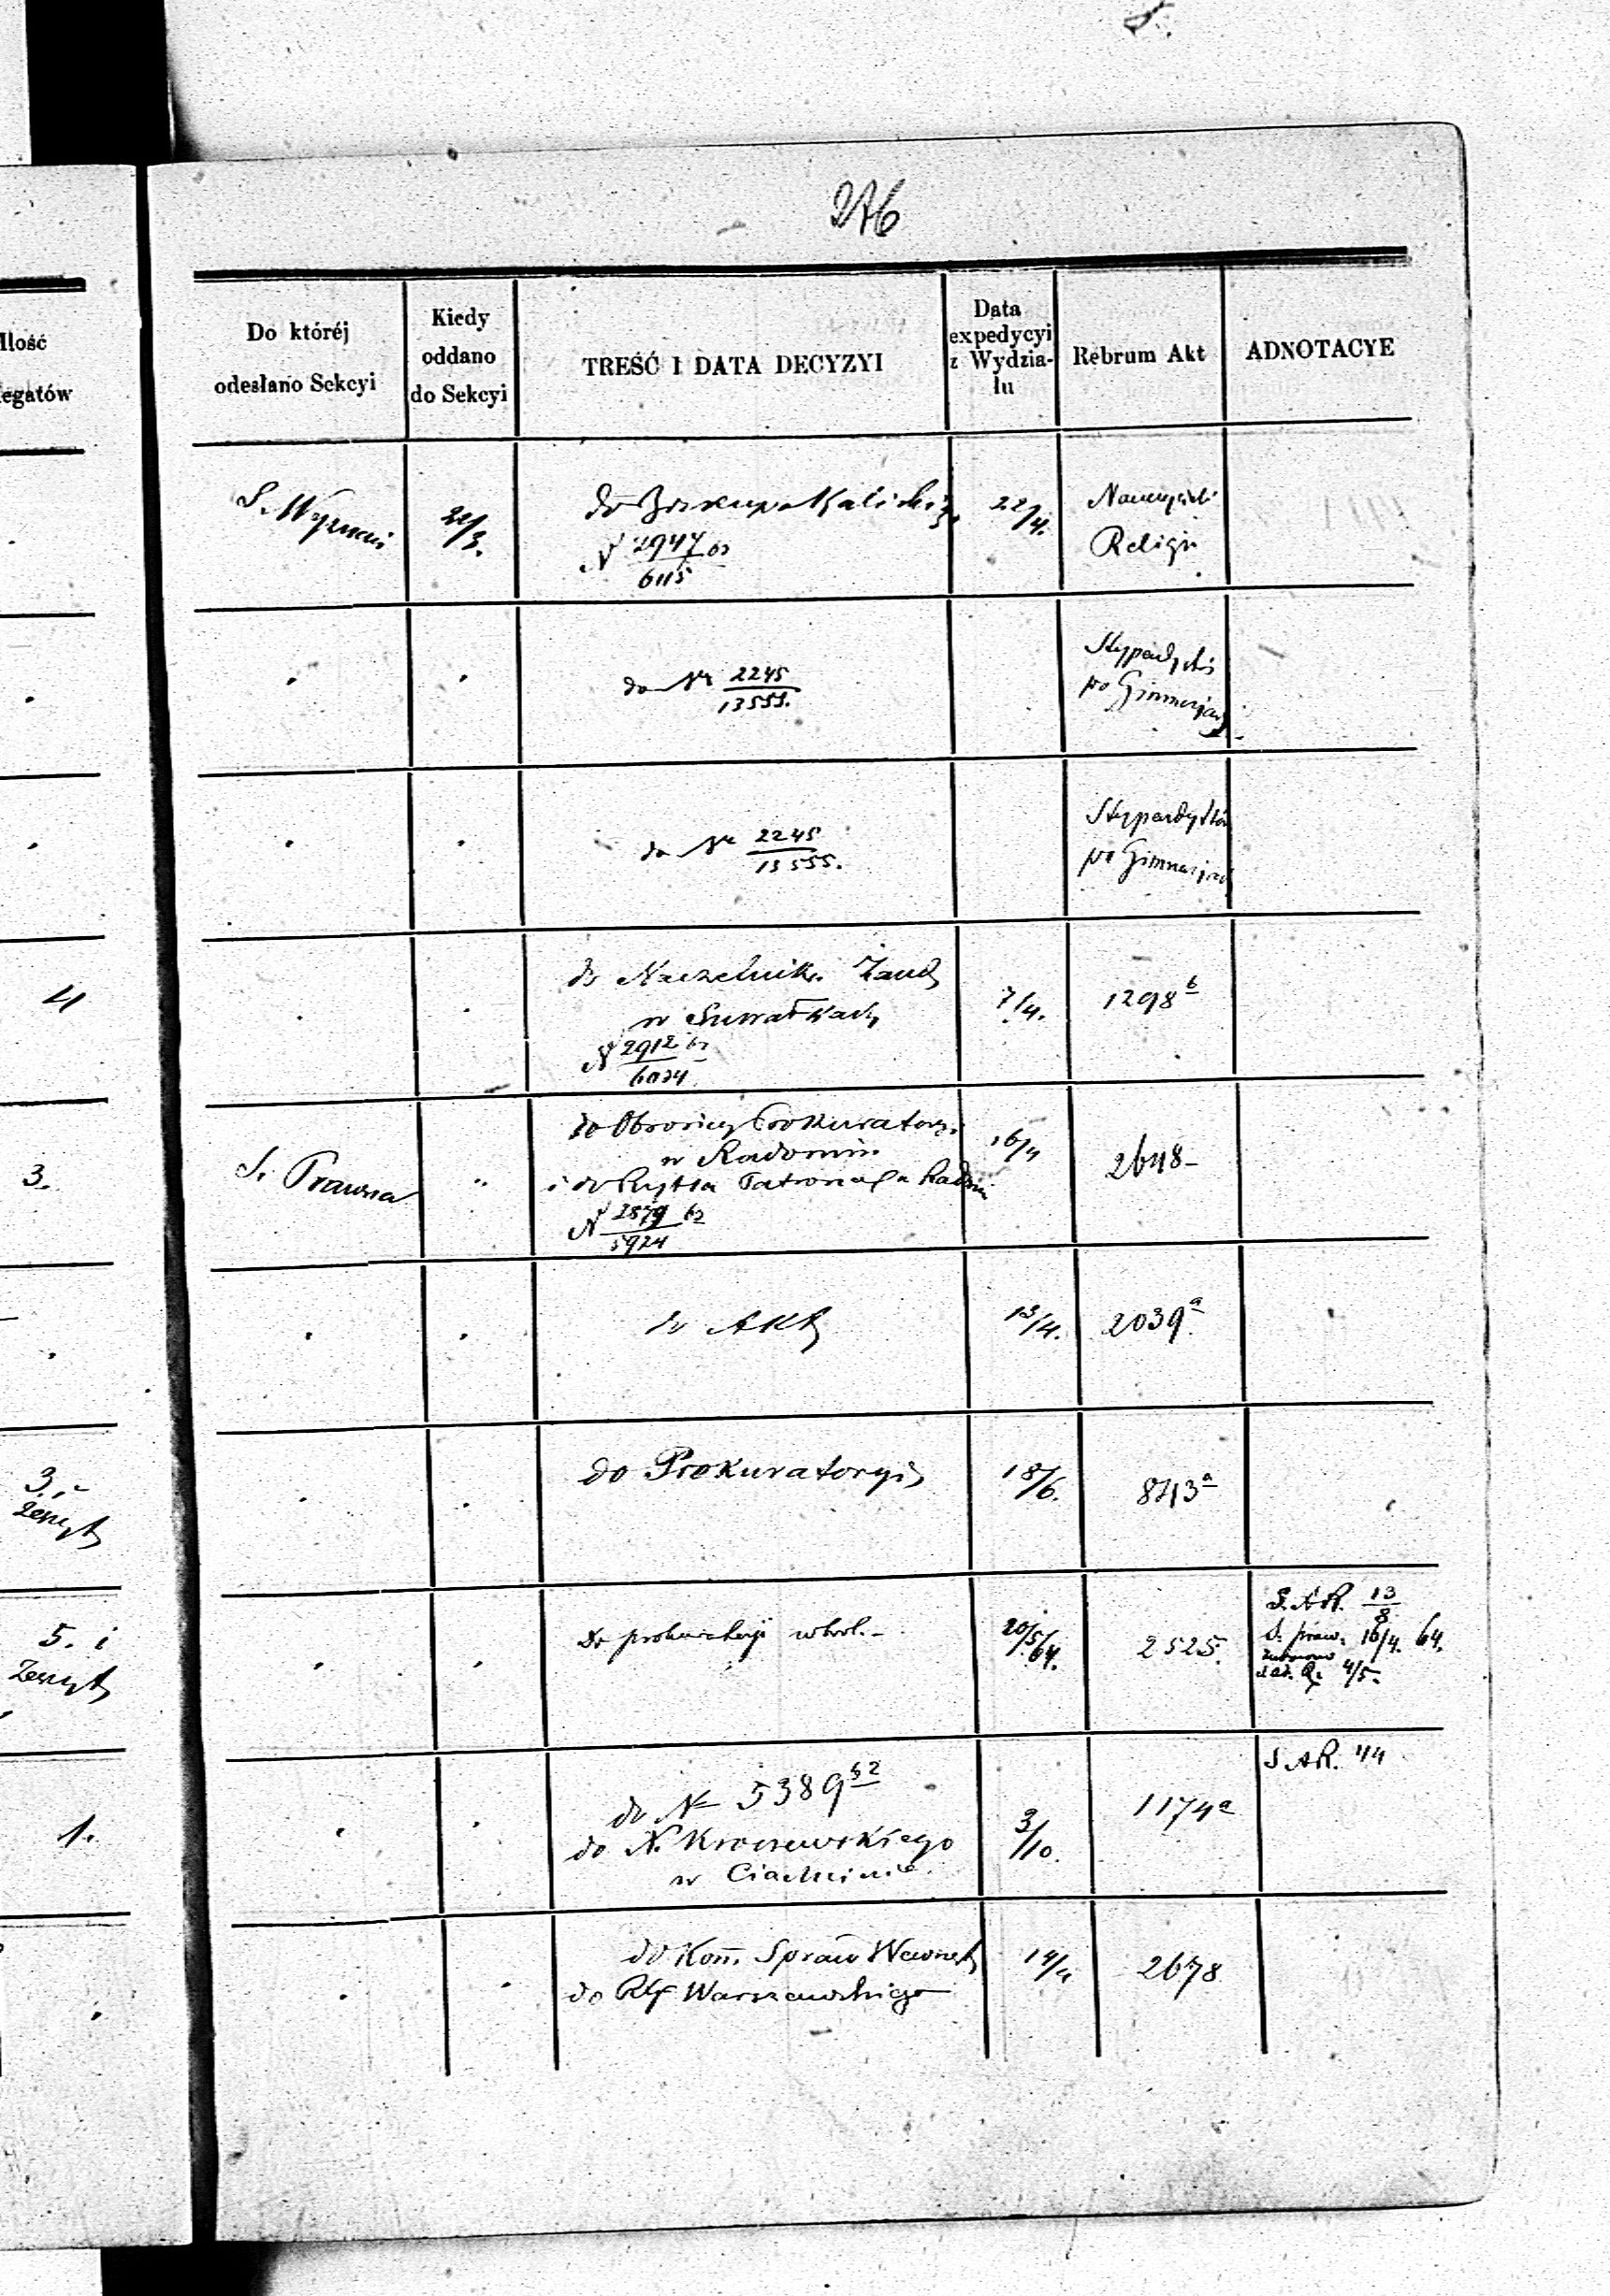 276
Ilość
egatów
Do któréj
odesłano Sekcyi
Kiedy
oddano
do Sekcyi
TREŚĆ I DATA DECYZYI
Data
expedycyi
z Wydzia-
łu
Rebrum Akt
ADNOTACYE
S. Wyznań
21/3.
do Biskupa Kaliskiego
N 2947/6115 63
22/4.
Nauczyciele
Religii
do Nr 2245/13555.
Stypendyści
po Gimnazjach
do Nr 2245/13555.
Stypendystów
po Gimnazjach
4
do Naczelnika Żand
w Suwałkach
N 2912/6034 63
7/4.
1298 b
3.
S. Prawna
do Obrońcy Prokuratoryi
w Radomiu
i do Patrona w Radomiu
N 2879/5924 63
16/4
2648-
do Akt
13/4.
2039 a
3. i
Zeszyt
do Prokuratoryi
18/6.
843 a
5. i
Zeszyt
do prokuratoryi
20/5/64.
2525.
S. A. R. 13/8
S. praw. 16/4. 64.
4/5.
1.
do N 5389 62
do N.
w Ciechocinie
3/10.
1174 a
S. A. R. 4/4
do Kom. Spraw Wewnęt
do Rzą Warszawskiego
14/4
2678